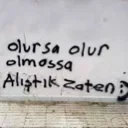 olursa olur
olmassa
Alıştık zaten :)